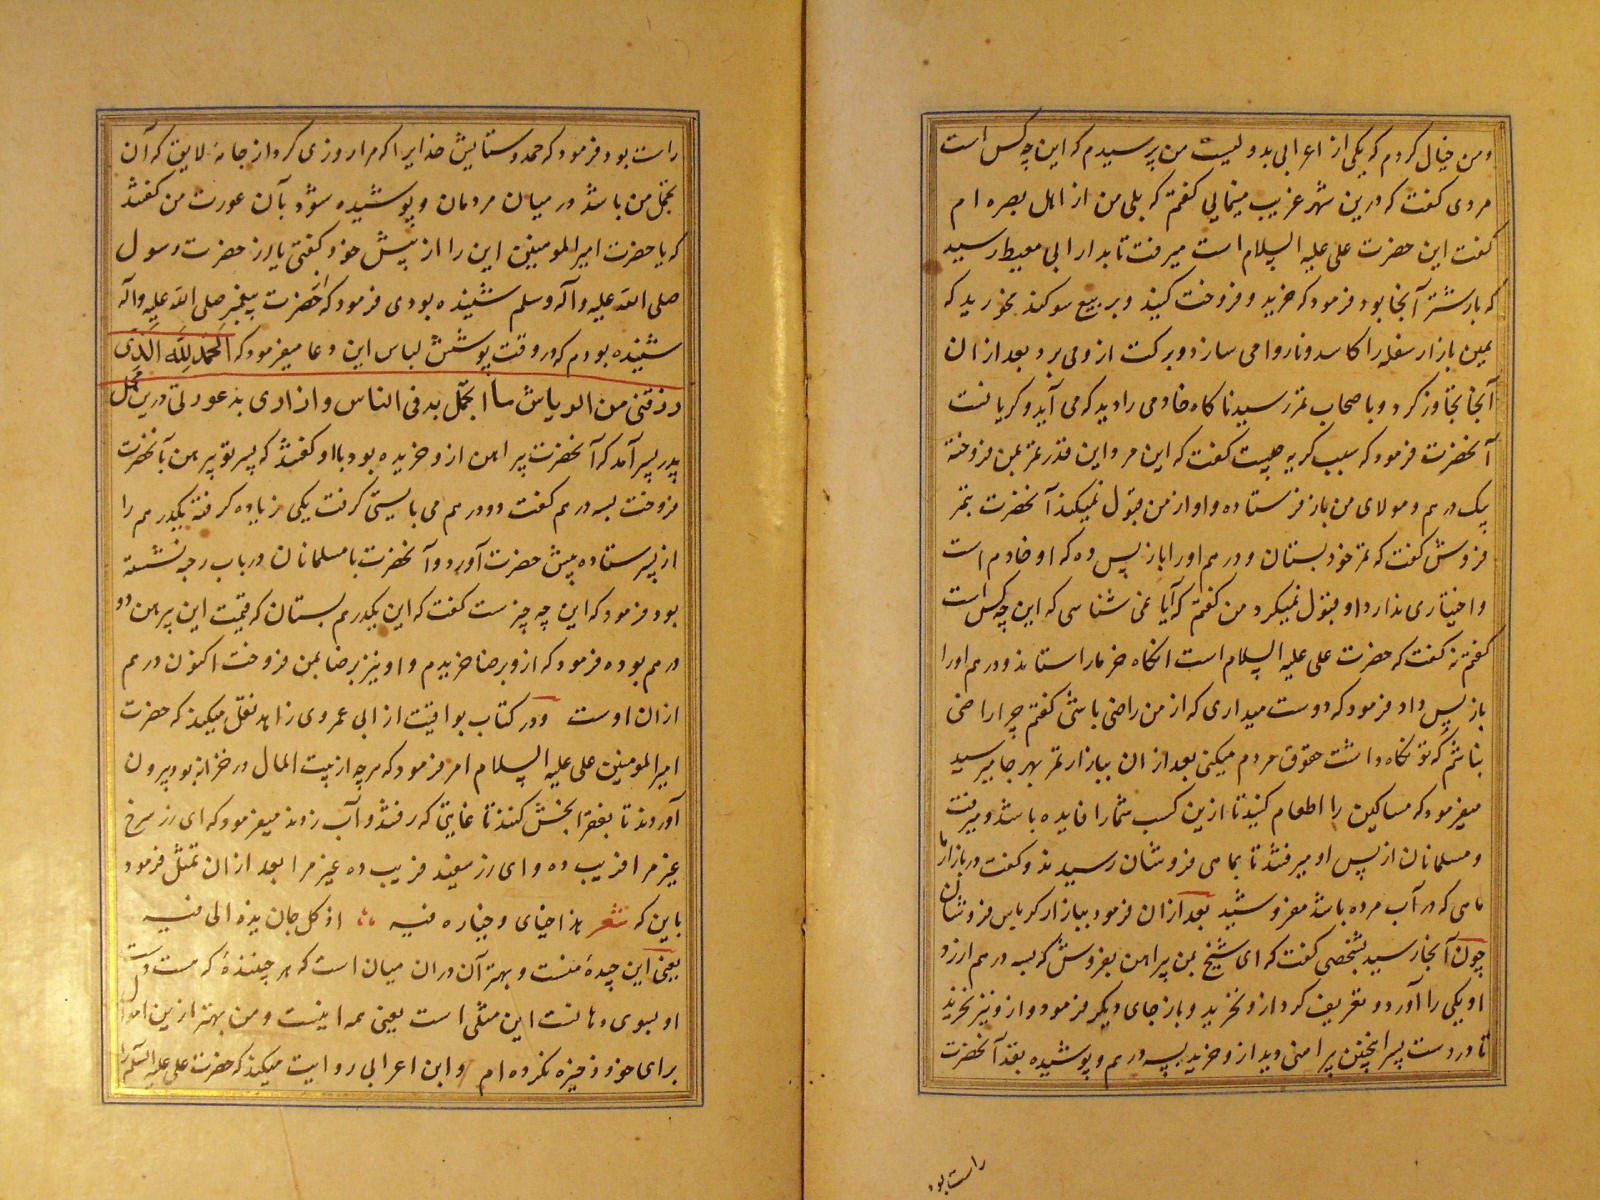 ومن خیال کردم که یکی از اعرابی بدویست من پرسیدم که این چه کس است
مردی گفت که درین شهر غریب مینمایی گفتم که بلی من از اهل بصره ام
گفت این حضرت علی علیه السلام است میرفت تا بدار ابی معیط رسید
که بازار شتر آنجا بود فرمود که خرید و فروخت کنید و بر بیع سوگند مخورید که
یمین بازار سلعه را کاسد و ناروا می سازد و برکت ازو می برد بعد از ان
آنجا تجاوز کرد و باصحاب تمر رسید ناکاه خادمی را دید که می آید و کریانست
آنحضرت فرمود که سبب کریه چیست گفت که این مرد این قدر تمر بمن فروخته
بیک درهم و مولای من باز فرستاده و او از من قبول نمیکند آنحضرت بتمر
فروش گفت که تمر خود بستان و درهم او را باز پس ده که او خادم است
و اختیاری ندارد او قبول نمیکرد من گفتم که آیا نمی شناسی که این چه کس است
گفتم نه گفت که حضرت علی علیه السلام است انکاه خرما را ستاند و درهم او را
باز پس داد فرمود که دوست میداری که از من راضی باشی گفتم چرا راضی
نباشم که تو نکاه داشت حقوق مردم میکنی بعد از ان ببازار تمر بهر جا میرسید
میفرمود که مساکین را اطعام کنید تا ازین کسب شما را فایده باشد و میرفت
و مسلمانان از پس او میرفتند تا بماهی فروشان رسیدند و گفت در بازار ما
ماهی که در آب مرده باشد مفروشید بعد از ان فرمود ببازار کرباس فروشان
چون آنجا رسید بشخصی گفت که ای شیخ بمن پیراهن بفروش که بسه درهم ارزد
او یکی را آورد و تعریف کرد ازو نخرید و باز جای دیگر فرمود و ازو نیز نخرید
تا در دست پسرا بچنین پیراهنی دید ازو خرید بسه درهم و پوشیده بقد آنحضرت
راست بود
راست بود فرمود که حمد و ستایش خدایرا که مرا روزی کرد از جامهٔ لایق که آن
تجمل من باشد در میان مردمان و پوشیده شود بآن عورت من گفتند
که یا حضرت امیر المومنین این را از پیش خود گفتی یا از حضرت رسول
صلی الله علیه وآله وسلم شنیده بودی فرمود که از حضرت پیغمبر صلی الله علیه وآله
شنیده بودم که در وقت پوشش لباس این دعا میفرمود که الحمد لله الذی
رزقنی من الریاش ما اتجمل به فی الناس و اواری به عورتی درین محل
پدر پسر آمد که آنحضرت پیراهن ازو خریده بود با او گفتند که پسر تو پیرهن بآنحضرت
فروخت بسه درهم گفت دو درهم می بایستی گرفت یکی زیاده گرفته یکدرهم را
از پسر ستاده پیش حضرت آورد و آنحضرت با مسلمانان در باب رحبه نشسته
بود فرمود که این چه چیز ست گفت که این یکدرم بستان که قیمت این پیرهن دو
درهم بوده فرمود که ازو برضا خریدم و او نیز برضا بمن فروخت اکنون درهم
از ان اوست ودر کتاب یواقیت از ابی عمروی زاهد نقل میکند که حضرت
امیر المومنین علی علیه السلام امر فرمود که هرچه از بیت المال در خزانه بود بیرون
آوردند تا بفقرا بخش کنند تا غایتی که رفتند و آب زدند میفرمود که ای زر سرخ
غیر مرا فریب ده و ای زر سفید فریب ده غیر مرا بعد از ان تمثل فرمود
باین که شعر هذا جنای و خیاره فیه اذ کل جان یده الی فیه
یعنی این چیدهٔ منست و بهتر آن در ان میان است که هر چنندهٔ که هست دست
او بسوی دهانست این مثلی است یعنی همه اینست و من بهتر ازین اموال
برای خود ذخیره نکرده ام و ابن اعرابی روایت میکند که حضرت علی علیه السلام را